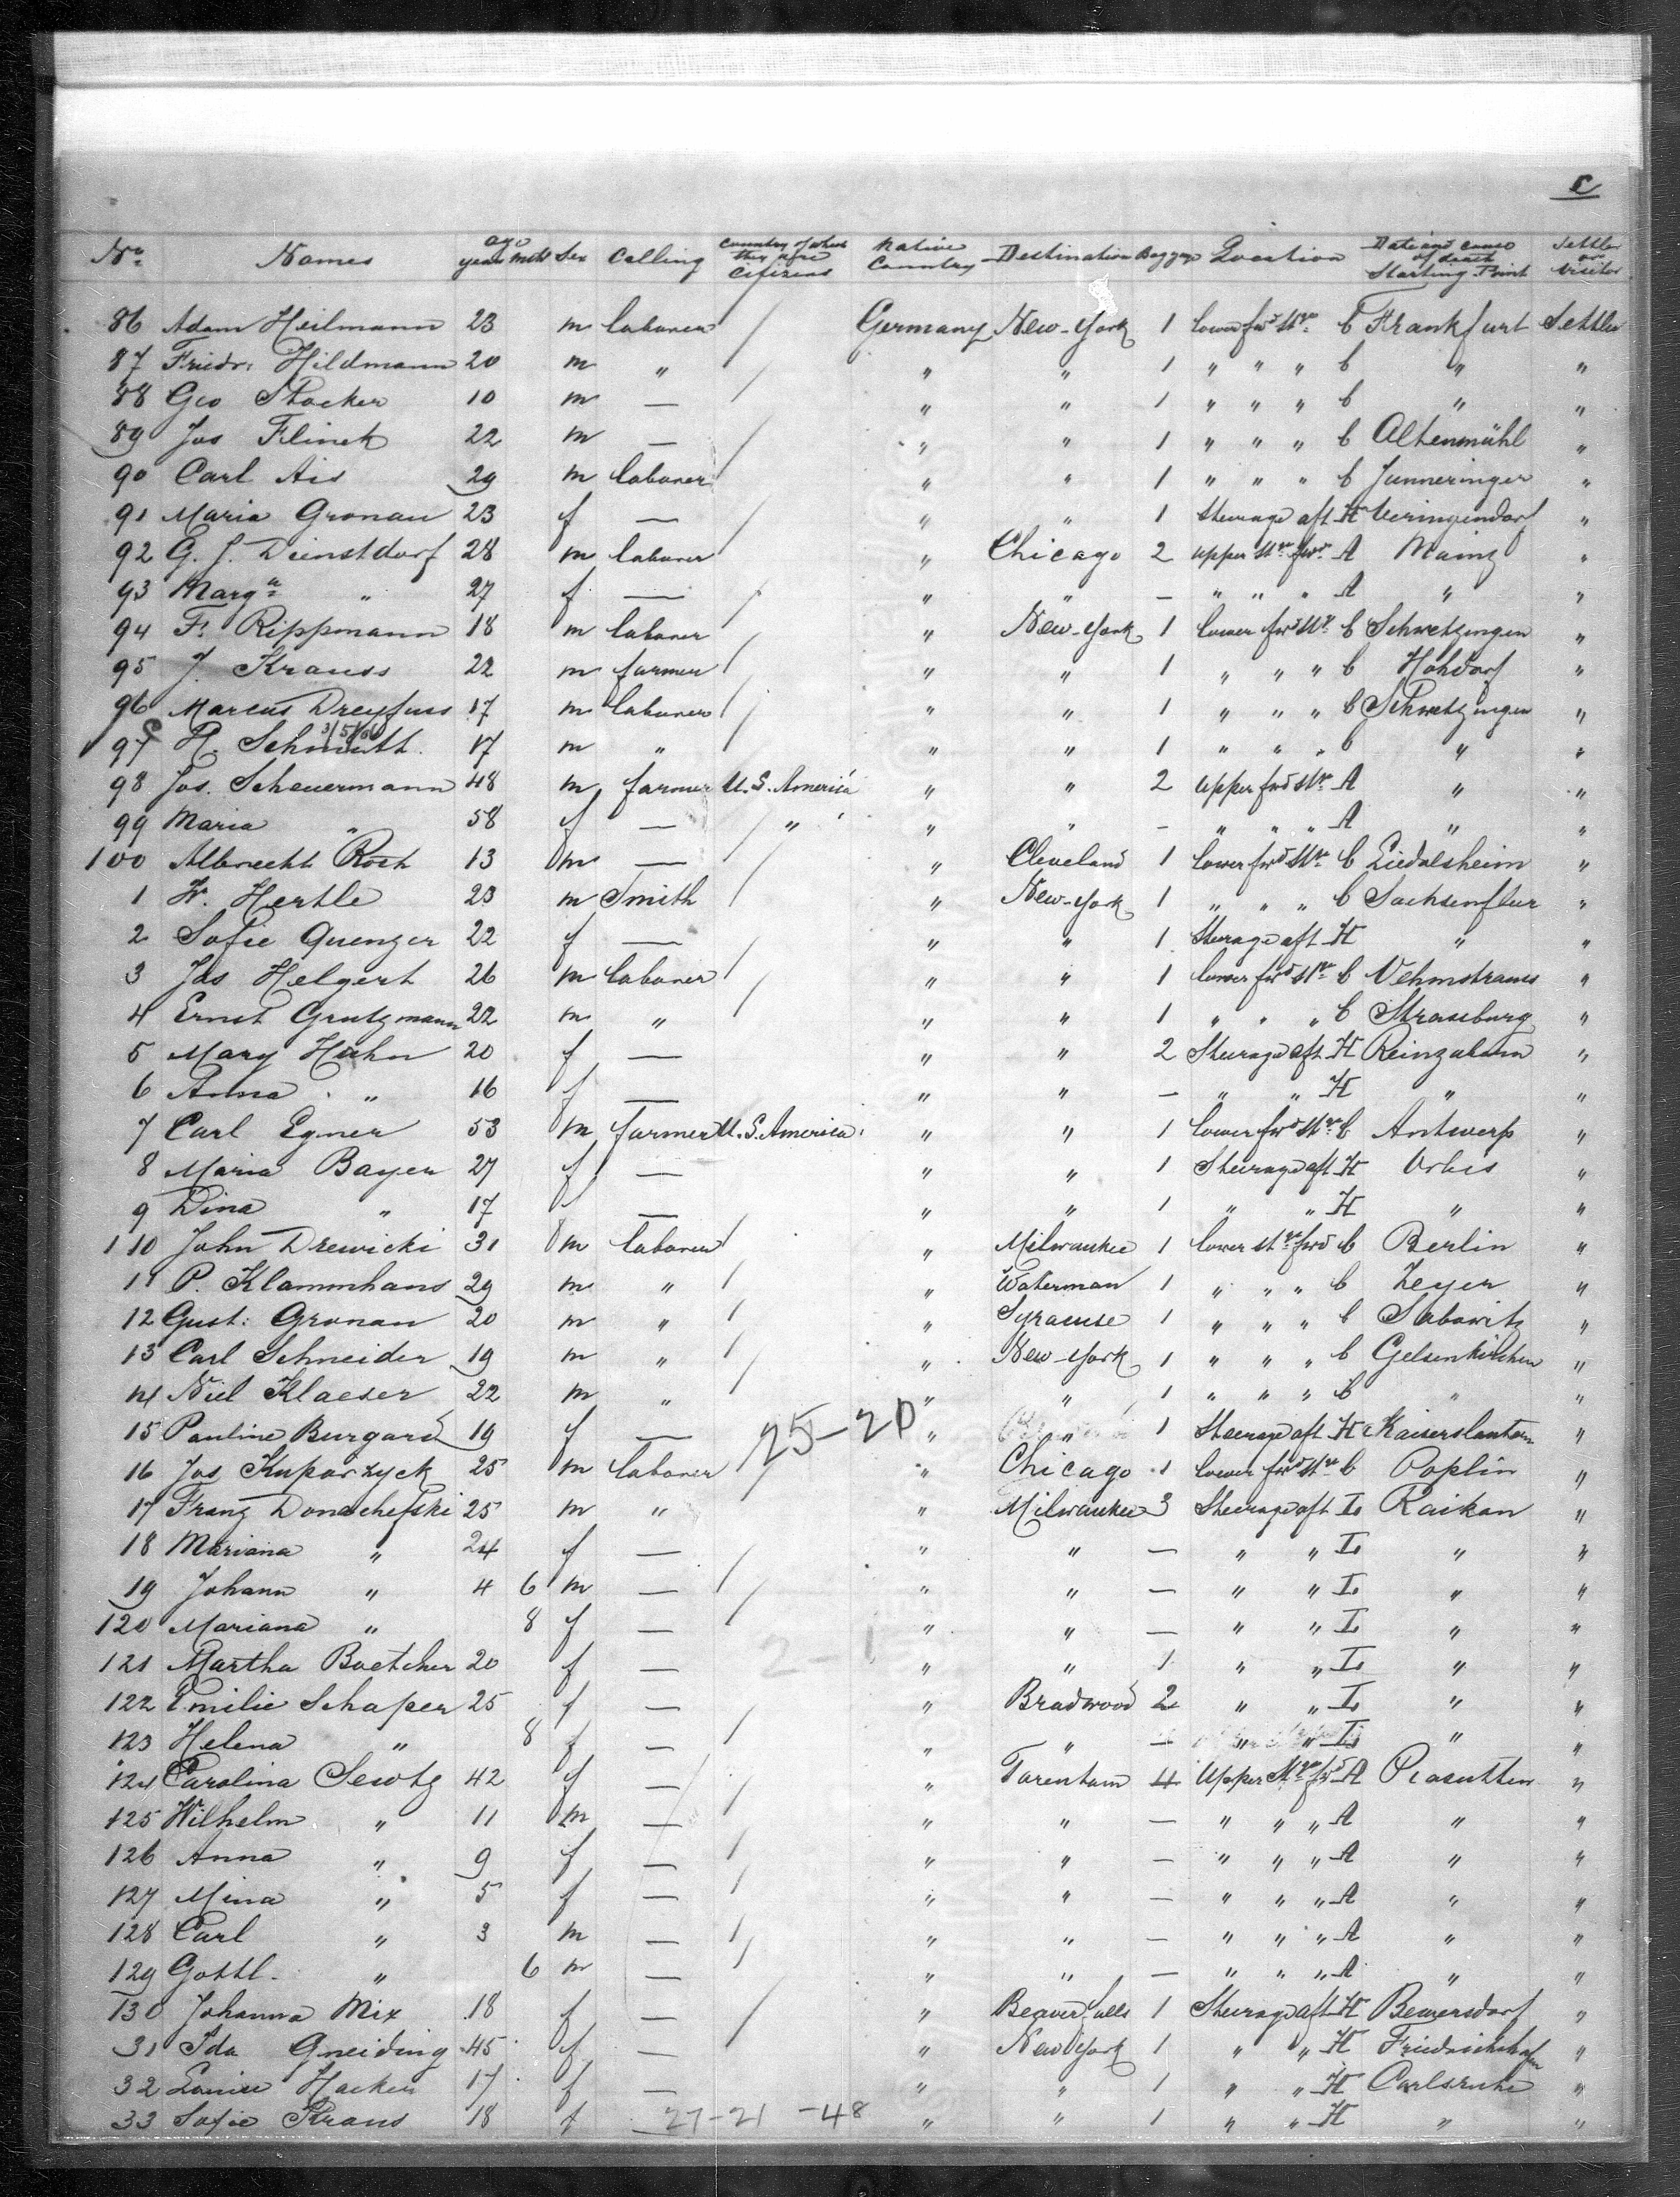 C
No. Names age years Mths Sex Calling Country of which they are Citizens Native Country Destination Baggage Location Date and cause of death Starting Point Settler or Visitor
86 Adam Heilmann 23 m laborer / Germany New-York 1 lower fwd St'ge C Frankfurt Settler
87 Friedr: Hildmann 20 m " / " " 1 " " " C " "
88 Geo Stocker 10 m — / " " 1 " " " C " "
89 Jos Flinck 22 m — / " " 1 " " " C Altenmühl "
90 Carl Ais 29 m laborer / " " 1 " " " C Junneringer "
91 Maria Gronau 23 f — / " " 1 Steerage aft H Veringendorf "
92 G. J. Deinstdorf 28 m laborer / " Chicago 2 upper St'ge fwd A Mainz "
93 Marga " 27 f — / " " — " " " A " "
94 Fr Rippmann 18 m laborer / " New-York 1 lower fwd St'ge C Schwetzingen "
95 J. Krauss 22 m farmer / " " 1 " " " C Hohdorf "
96 Marcus Dreyfuss 17 m laborer / " " 1 " " " C Schwetzingen "
97 H. Schmutt. 17 m " / " " 1 " " " C " "
98 Jos. Scheuermann 48 m farmer U.S. America " " 2 upper fwd St'ge A " "
99 Maria " 58 f — / " " " — " " " A " "
100 Albrecht Rosh 13 m — / " Cleveland 1 lower fwd St'ge C Liedolsheim "
1 W. Hertle 23 m Smith / " New-York 1 " " " C Sachsenflur "
2 Sofie Quenzer 22 f — " " 1 Steerage aft H " "
3 Jos Helgert 26 m laborer / " " 1 lower fwd St'ge C Vehmstrauss "
4 Ernst Grutzmann 22 m " / " " 1 " " " C Strassburg "
5 Mary Huhn 20 f — " " 2 Steerage aft H Reinzabern "
6 Anna " 16 f — " " — " " H " "
7 Carl Egner 53 m farmer U.S. America " " 1 lower fwd St'ge C Antwerp "
8 Maria Bayer 27 f — " " 1 Steerage aft H Orbis "
9 Dina " 17 f — " " 1 " " H " "
110 John Drewicki 31 m laborer / " Milwaukee 1 lower St'ge fwd C Berlin "
11 P. Klammhans 29 m " / " Waterman 1 " " " C Zeyer "
12 Gust: Gronau 20 m " / " Syracuse 1 " " " C Sabowitz "
13 Carl Schneider 19 m " / " New-York 1 " " " C Gelsenkirchen "
14 Niel Klaeser 22 m " / " " 1 " " " C " "
15 Pauline Burgard 19 f — 25-20 " " 1 Steerage aft H Kaiserslautern "
16 Jos Kuparzyck 25 m laborer / " Chicago 1 lower fwd St'ge C Poplin "
17 Franz Donschefski 25 m " " Milwaukee 3 Steerage aft I Raikan "
18 Mariana " 24 f — / " " — " " I " "
19 Johann " 4 6 m — / " " — " " I " "
120 Mariana " 8 f — / " " — " " I " "
121 Martha Boetcher 20 f — 2-1 " " 1 " " I " "
122 Emilie Schaper 25 f — " Bradwood 2 " " I " "
123 Helena " 8 f — / " " — " " I " "
124 Carolina Sewtz 42 f — / " Tarentum 4 Upper St'ge fwd A "
125 Wilhelm " 11 m — / " " — " " " A " "
126 Anna " 9 f — / " " — " " " A " "
127 Mina " 5 f — / " " — " " " A " "
128 Carl " 3 m — / " " — " " " A " "
129 Gottl. " 6 m — / " " — " " " A " "
130 Johanna Mix 18 f — / " Beaver falls 1 Steerage aft H Bewersdorf "
31 Ida Gneiding 45 f — / " New York 1 " " H Friedrichshafen "
32 Louise Hacker 17 f — " " 1 " " H Carlsruhe "
33 Sofie Kraus 18 f — 27-21 -48 " " 1 " " H " "